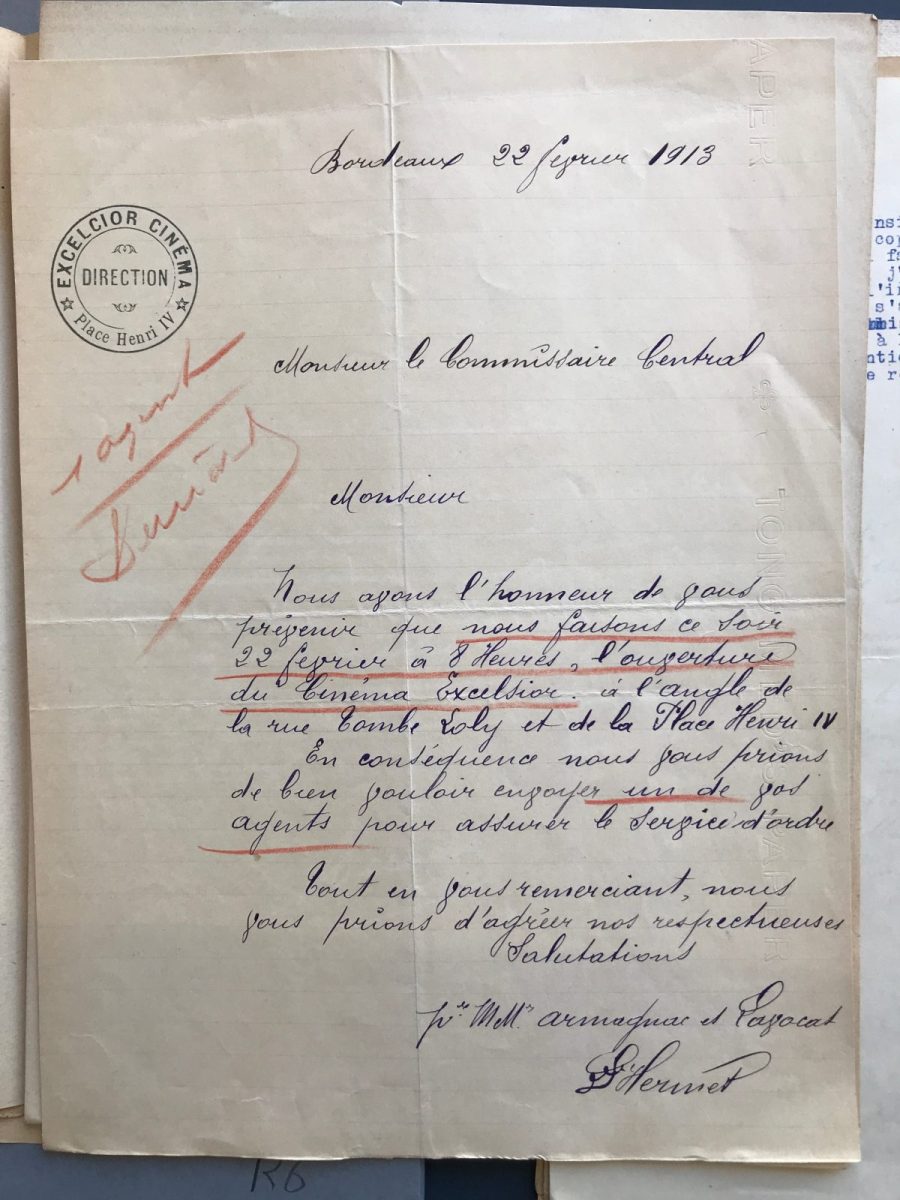 Bordeaux 22 fevrier 1913
EXCELCIOR CINÉMA
DIRECTION
Place Henri IV
Monsieur le Commissaire Central
1 agent
Monsieur
Nous avons l'honneur de vous
prévenir que nous faisons ce soir
22 fevrier à 8 Heures, l'ouverture
du Cinéma Excelsior. à l'angle de
la rue Tombe Loly et de la Place Henri IV
En conséquence nous vous prions
de bien vouloir envoyer un de vos
agents pour assurer le service d'ordre
Tout en vous remerciant, nous
vous prions d'agréer nos respectueuses
Salutations
pr MMrs Armagnac et Lavocat
L'Hermet
R6